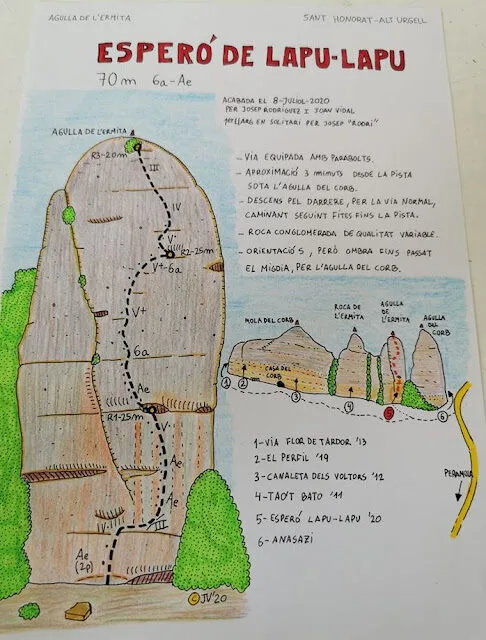 AGULLA DE L'ERMITA
SANT HONORAT-ALT URGELL
ESPERÓ DE LAPU-LAPU
70m 6a-Ae
ACABADA EL 8-JULIOL-2020
PER JOSEP RODRIGUEZ I JOAN VIDAL
1er LLARG EN SOLITARI PER JOSEP "RODRI"
- VIA EQUIPADA AMB PARABOLTS.
- APROXIMACIÓ 3 MINUTS DESDE LA PISTA
SOTA L'AGULLA DEL CORB.
- DESCENS PEL DARRERE, PER LA VIA NORMAL,
CAMINANT SEGUINT FITES FINS LA PISTA.
- ROCA CONGLOMERADA DE QUALITAT VARIABLE.
- ORIENTACIÓ S, PERÒ OMBRA FINS PASSAT
EL MIGDIA, PER L'AGULLA DEL CORB.
AGULLA DE L'ERMITA
R3-20m
III
IV
V
R2-25m
V+-6a
V+
6a
Ae
R1-25m
V
Ae
Ae
III
Ae
(2p)
© JV'20
MOLA DEL CORB
ROCA DE
L'ERMITA
AGULLA
DE
L'ERMITA
AGULLA
DEL
CORB
CASA DEL
CORB
1
2
3
4
5
6
PERAMOLA
1-VIA FLOR DE TARDOR '13
2-EL PERFIL '19
3-CANALETA DELS VOLTORS '12
4-TAO'T BATO '11
5-ESPERÓ LAPU-LAPU '20
6-ANASAZI